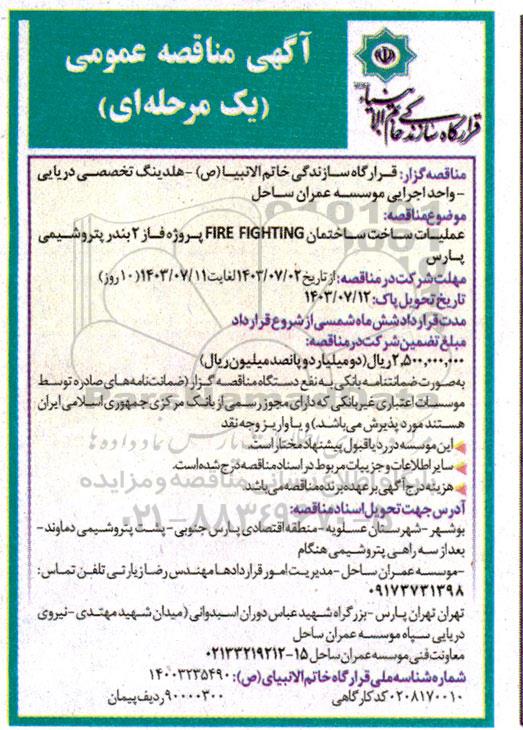 آگهی مناقصه عمومی
(یک مرحله‌ای)
قرارگاه سازندگی خاتم الانبیاء
مناقصه گزار: قرارگاه سازندگی خاتم الانبیا (ص) -هلدینگ تخصصی دریایی
-واحد اجرایی موسسه عمران ساحل
موضوع مناقصه:
عملیات ساخت ساختمان FIRE FIGHTING پروژه فاز ۲ بندر پتروشیمی
پارس
مهلت شرکت در مناقصه: از تاریخ ۱۴۰۳/۰۷/۰۲ لغایت ۱۴۰۳/۰۷/۱۱ (۱۰ روز)
تاریخ تحویل پاک: ۱۴۰۳/۰۷/۱۲
مدت قرارداد شش ماه شمسی از شروع قرارداد
مبلغ تضمین شرکت در مناقصه:
۲,۵۰۰,۰۰۰,۰۰۰ ریال (دو میلیارد و پانصد میلیون ریال)
به صورت ضمانتنامه بانکی به نفع دستگاه مناقصه گزار (ضمانت‌نامه‌های صادره توسط
موسسات اعتباری غیربانکی که دارای مجوز رسمی از بانک مرکزی جمهوری اسلامی ایران
هستند مورد پذیرش می‌باشد) و یا واریز وجه نقد
این موسسه در رد یا قبول پیشنهاد مختار است.
سایر اطلاعات و جزییات مربوط در اسناد مناقصه درج شده است.
هزینه درج آگهی بر عهده برنده مناقصه می‌باشد
آدرس جهت تحویل اسناد مناقصه:
بوشهر -شهرستان عسلویه -منطقه اقتصادی پارس جنوبی- پشت پتروشیمی دماوند-
بعد از سه راهی پتروشیمی هنگام
-موسسه عمران ساحل -مدیریت امور قراردادها مهندس رضا زیارتی تلفن تماس:
۰۹۱۷۳۷۳۱۳۹۸
تهران تهران پارس -بزرگراه شهید عباس دوران اسبدوانی (میدان شهید مهتدی -نیروی
دریایی سپاه موسسه عمران ساحل
معاونت فنی موسسه عمران ساحل ۱۵-۰۲۱۳۳۲۱۹۲۱۲
شماره شناسه ملی قرارگاه خاتم الانبیای (ص): ۱۴۰۰۳۲۳۵۴۹۰
۰۲۰۸۱۷۰۰۱۰ کد کارگاهی ۹۰۰۰۰۳۰۰ ردیف پیمان
پایگاه اطلاع رسانی مناقصه و مزایده